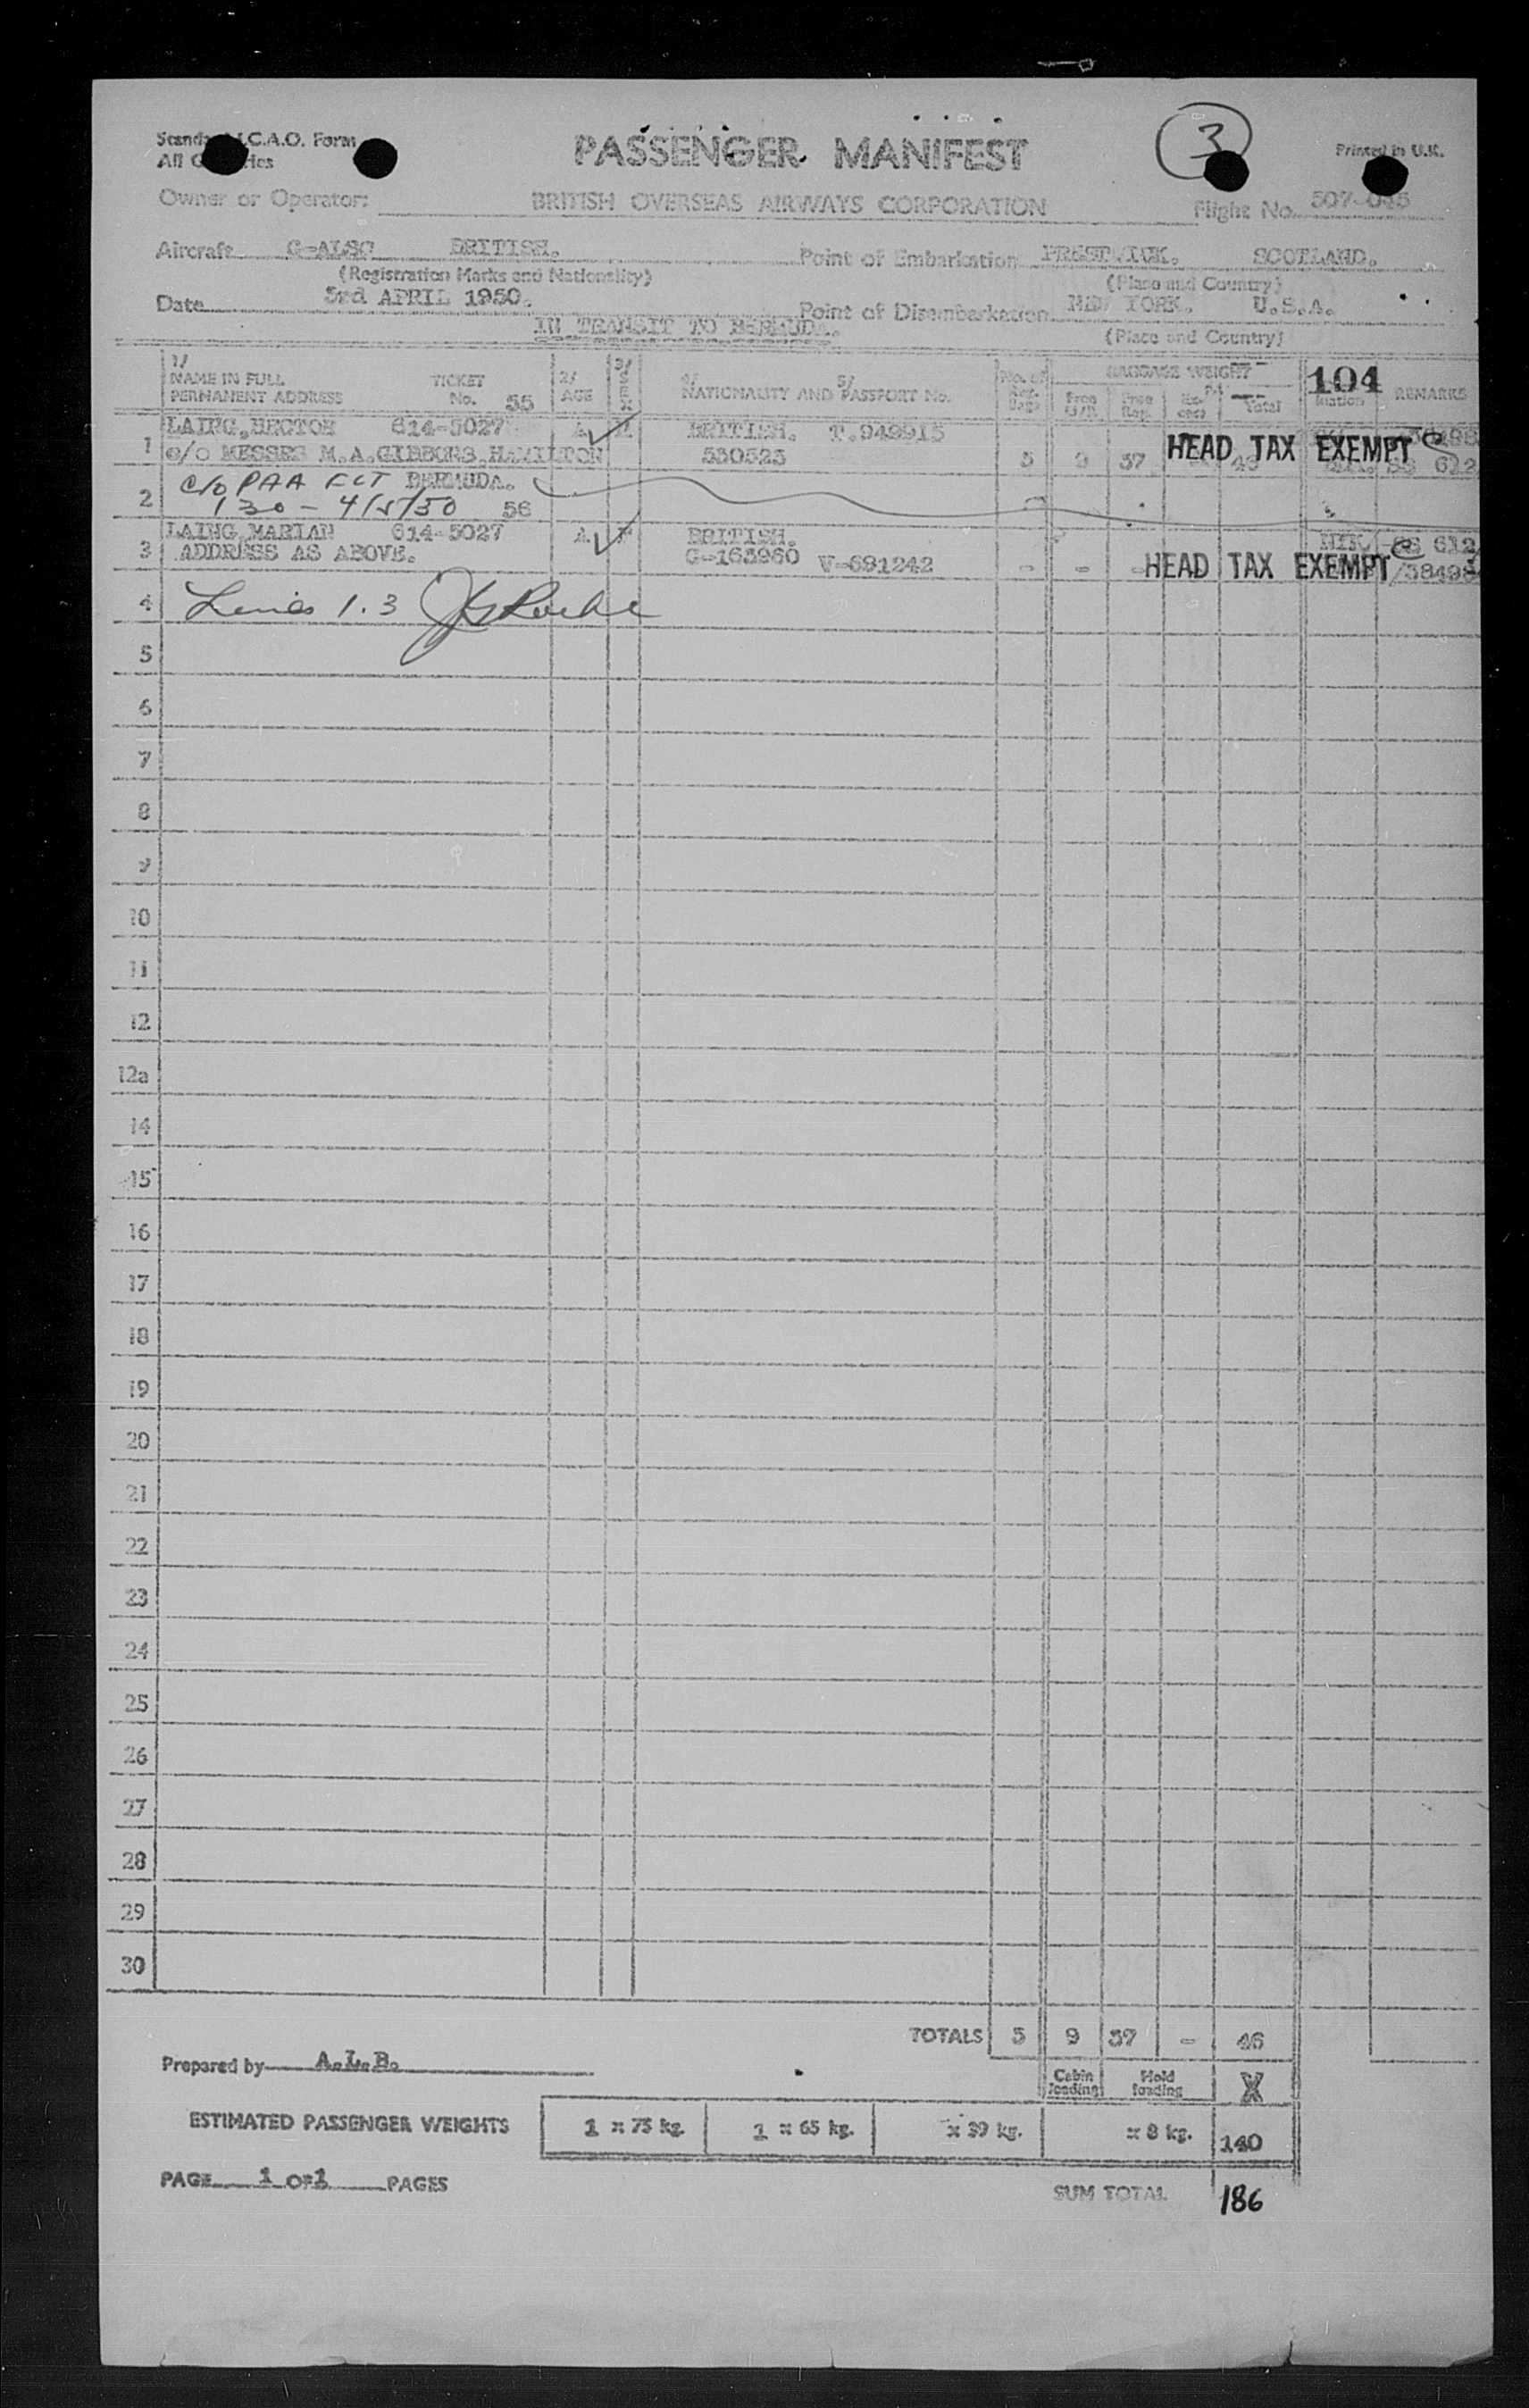 PASSENGER MANIFEST
3
Printed in U.K.
I.C.A.O. Form
All
Owner or Operator: BRITISH OVERSEAS AIRWAYS CORPORATION Flight No. 507-
Aircraft G-ALSC BRITISH. Point of Embarkation PRESTWICK. SCOTLAND.
(Registration Marks and Nationality) (Place and Country)
Date 3rd APRIL 1950. Point of Disembarkation NEW YORK. U.S.A.
IN TRANSIT TO BERMUDA. (Place and Country)
1/ NAME IN FULL PERMANENT ADDRESS TICKET No. 55
2/ AGE
3/ SEX
4/ 5/ NATIONALITY AND PASSPORT No.
BAGGAGE WEIGHT
Total
104
REMARKS
LAING, HECTOR 614-5027 A ✓ M BRITISH. T.949915
1 c/o MESSRS M.A.GIBBONS, HAMILTON 530523 3 9 37 HEAD TAX EXEMPT 612
c/o PAA FLT BERMUDA.
2 130 - 4/5/50 56
LAING, MARIAN 614-5027 A ✓ F BRITISH. 612
3 ADDRESS AS ABOVE. G-163960 V-691242 - - - HEAD TAX EXEMPT
4 Lines 1. 3
5
6
7
8
9
10
11
12
12a
14
15
16
17
18
19
20
21
22
23
24
25
26
27
28
29
30
TOTALS 3 9 37 - 46
Prepared by A.L.B.
Cabin loading Hold loading X
ESTIMATED PASSENGER WEIGHTS 1 x 75 kg. 1 x 65 kg. x 39 kg. x 8 kg. 140
PAGE 1 OF 1 PAGES
SUM TOTAL 186